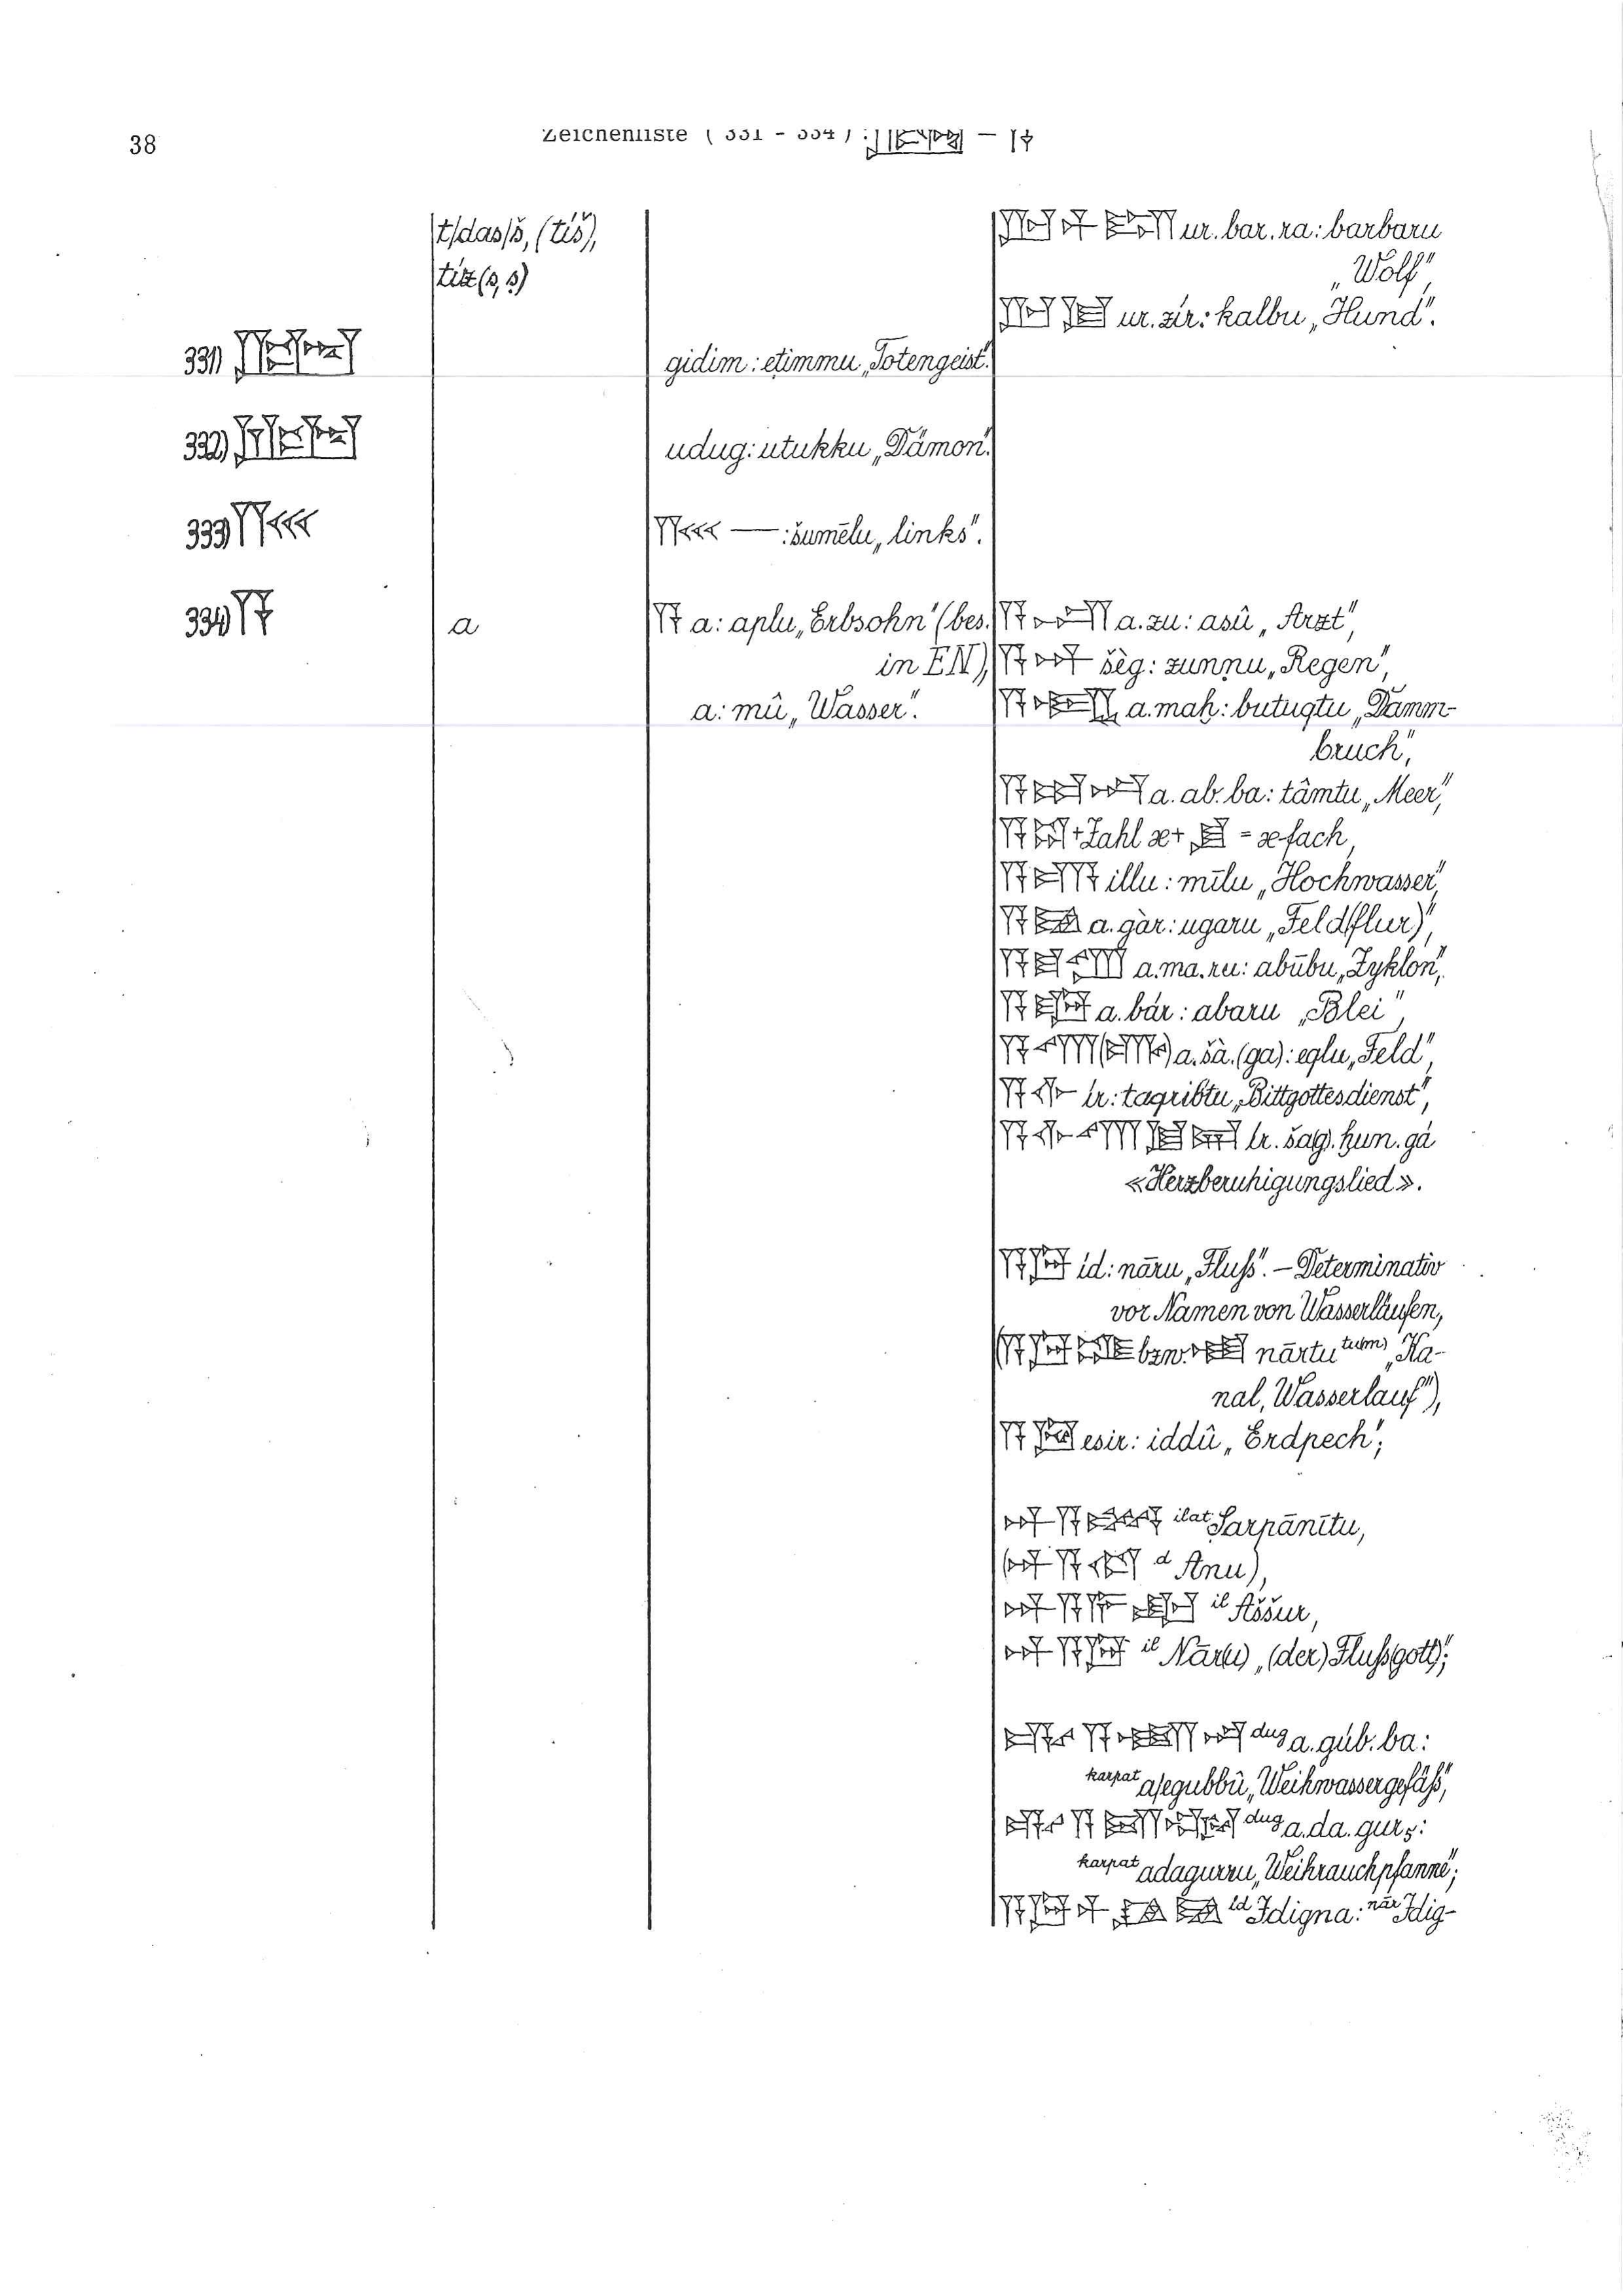 38
Zeichenliste ( 331 - 334 ) : 𒄇 — 𒀀
t/das/š, (tíš),
tíz (s, ṣ)
𒌨𒁇𒊏 ur. bar. ra: barbaru
„Wolf“,
𒌨 ur. zír: kalbu „Hund“.
331)
gidim : eṭimmu „Totengeist“.
332)
udug: utukku „Dämon“.
333)
— : šumēlu „links“.
334) 𒀀
a
𒀀 a: aplu „Erbsohn“ (bes.
in EN),
a: mû „Wasser“.
𒀀𒍪 a. zu: asû „Arzt“,
𒀀𒀭 šèg: zunnu „Regen“,
𒀀𒈤 a. maḫ: butuqtu „Damm-
bruch“,
𒀀𒀊𒁀 a. ab. ba: tâmtu „Meer“,
𒀀 + Zahl x + = x-fach,
illu : mīlu „Hochwasser“,
a. gàr: ugaru „Feld(flur)“,
a. ma. ru: abūbu „Zyklon“,
a. bár : abaru „Blei“,
𒀀𒊮(𒂵) a. šà. (ga): eqlu „Feld“,
ír: taqribtu „Bittgottesdienst“,
ír. šag. ḫun. gá
«Herzberuhigungslied».
íd: nāru „Fluß“. — Determinativ
vor Namen von Wasserläufen,
bzw. nārtu tu(m) „Ka-
nal, Wasserlauf“),
esir: iddû „Erdpech“;
ilat Ṣarpānītu,
(𒀭𒀀𒉡 d Anu),
il Aššur,
il Nāru, „(der) Flussgott“;
dug a. gúb. ba:
karpat a/egubbû „Weihwassergefäß“,
dug a. da. gur₅:
karpat adagurru „Weihrauchpfanne“;
íd Idigna: nār Idig-